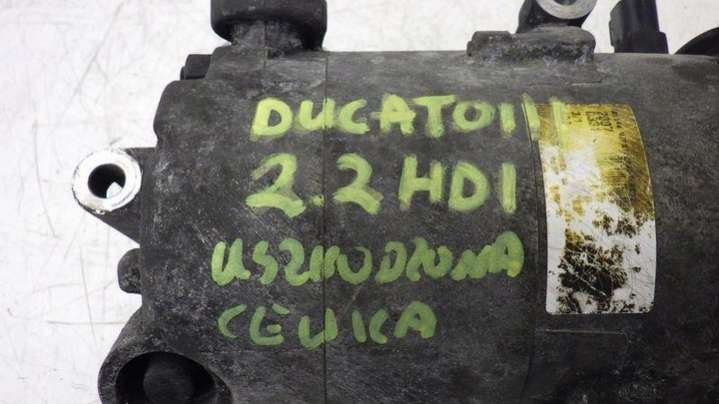 DUCATO III
2.2 HDI
USZKODZONA
CEWKA